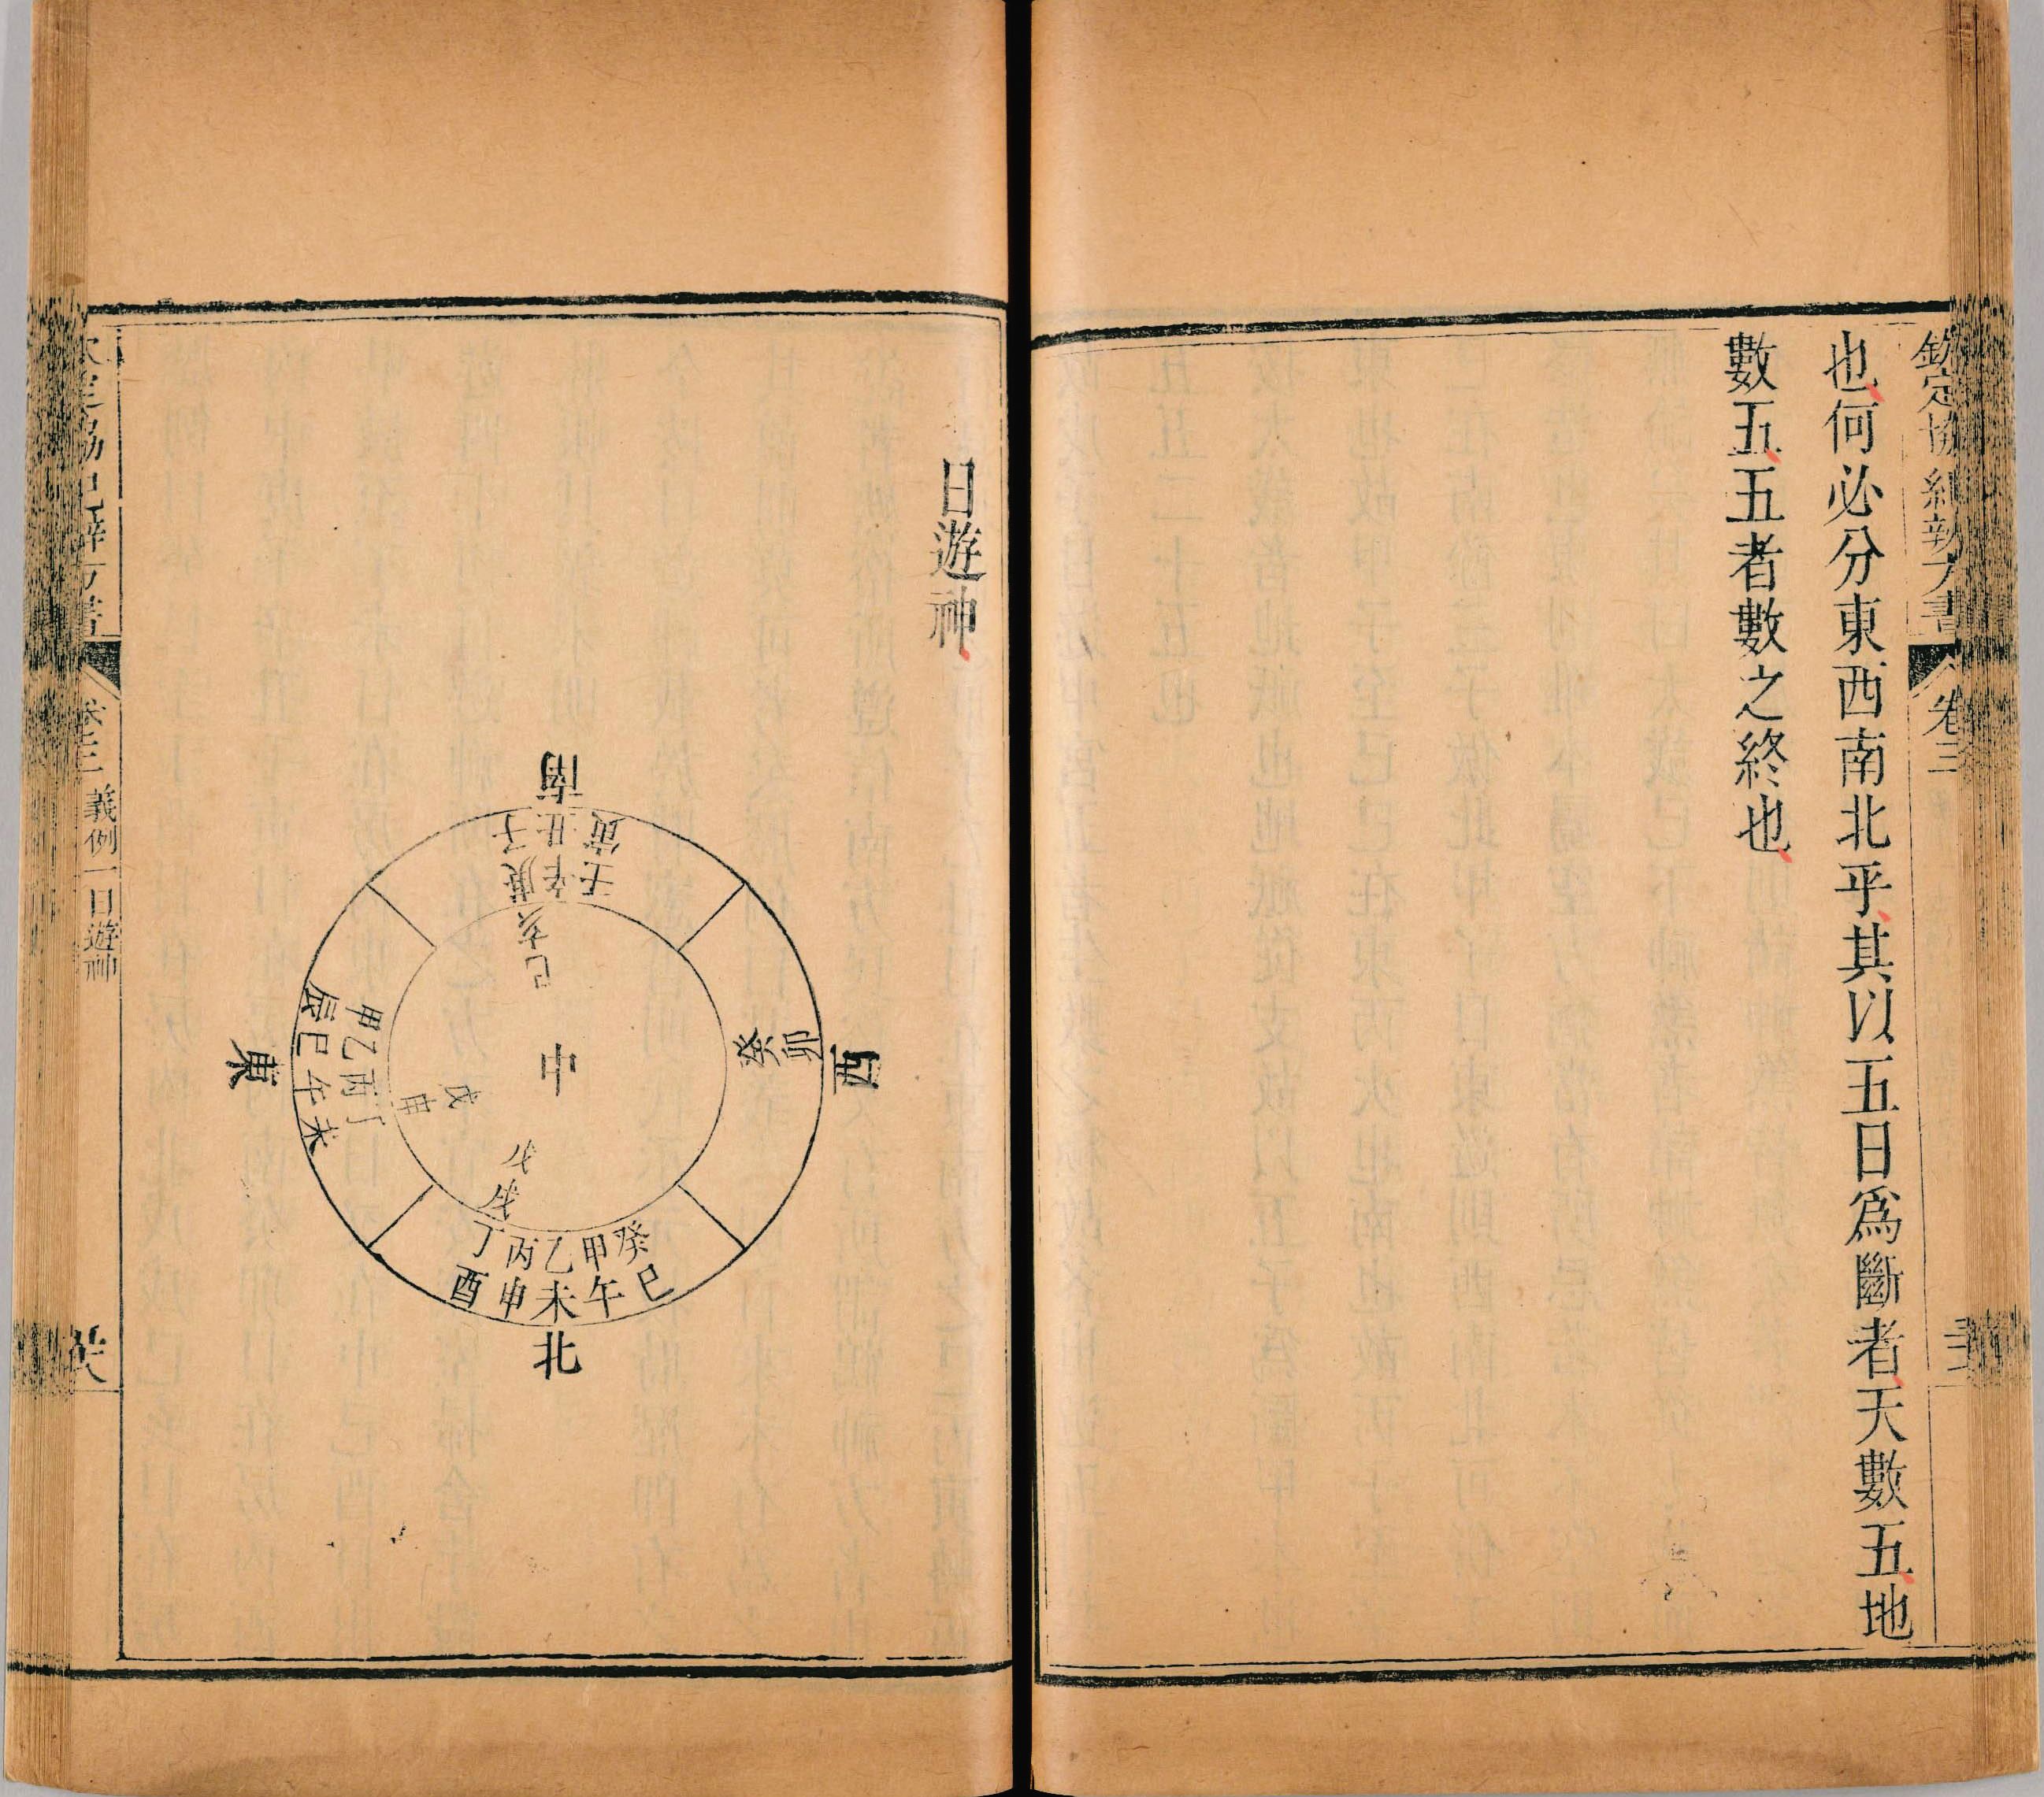 欽定協紀辨方書
卷三
也何必分東西南北乎其以五日爲斷者天數五地
數五五者數之終也
日遊神
南
子丑寅
庚辛壬
己亥
東
辰巳午未
甲乙丙丁
戊申
中
西
癸卯
戊戌
丁丙乙甲癸
酉申未午巳
北
欽定協紀辨方書
卷三
義例一日遊神